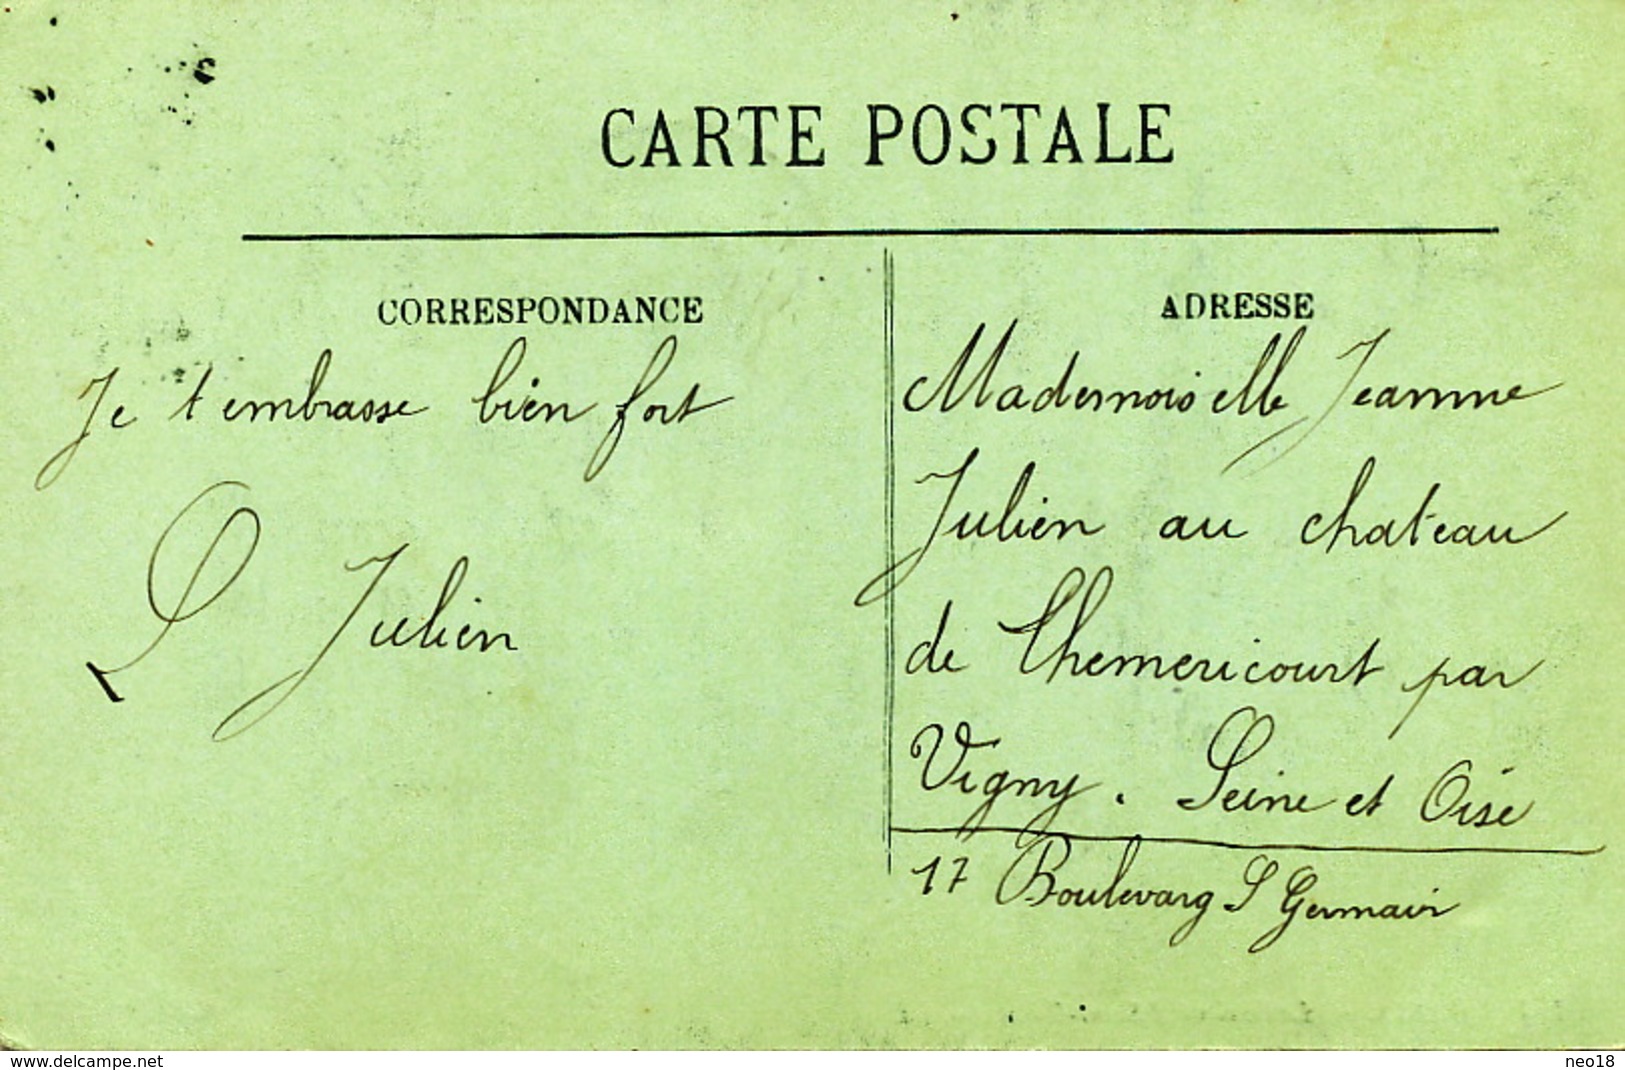 CARTE POSTALE
CORRESPONDANCE
Je t'embrasse bien fort
L Julien
ADRESSE
Mademoiselle Jeanne
Julien au chateau
de Themericourt par
Vigny. Seine et Oise
17 Boulevarg S Germain
www.delcampe.net
neo18